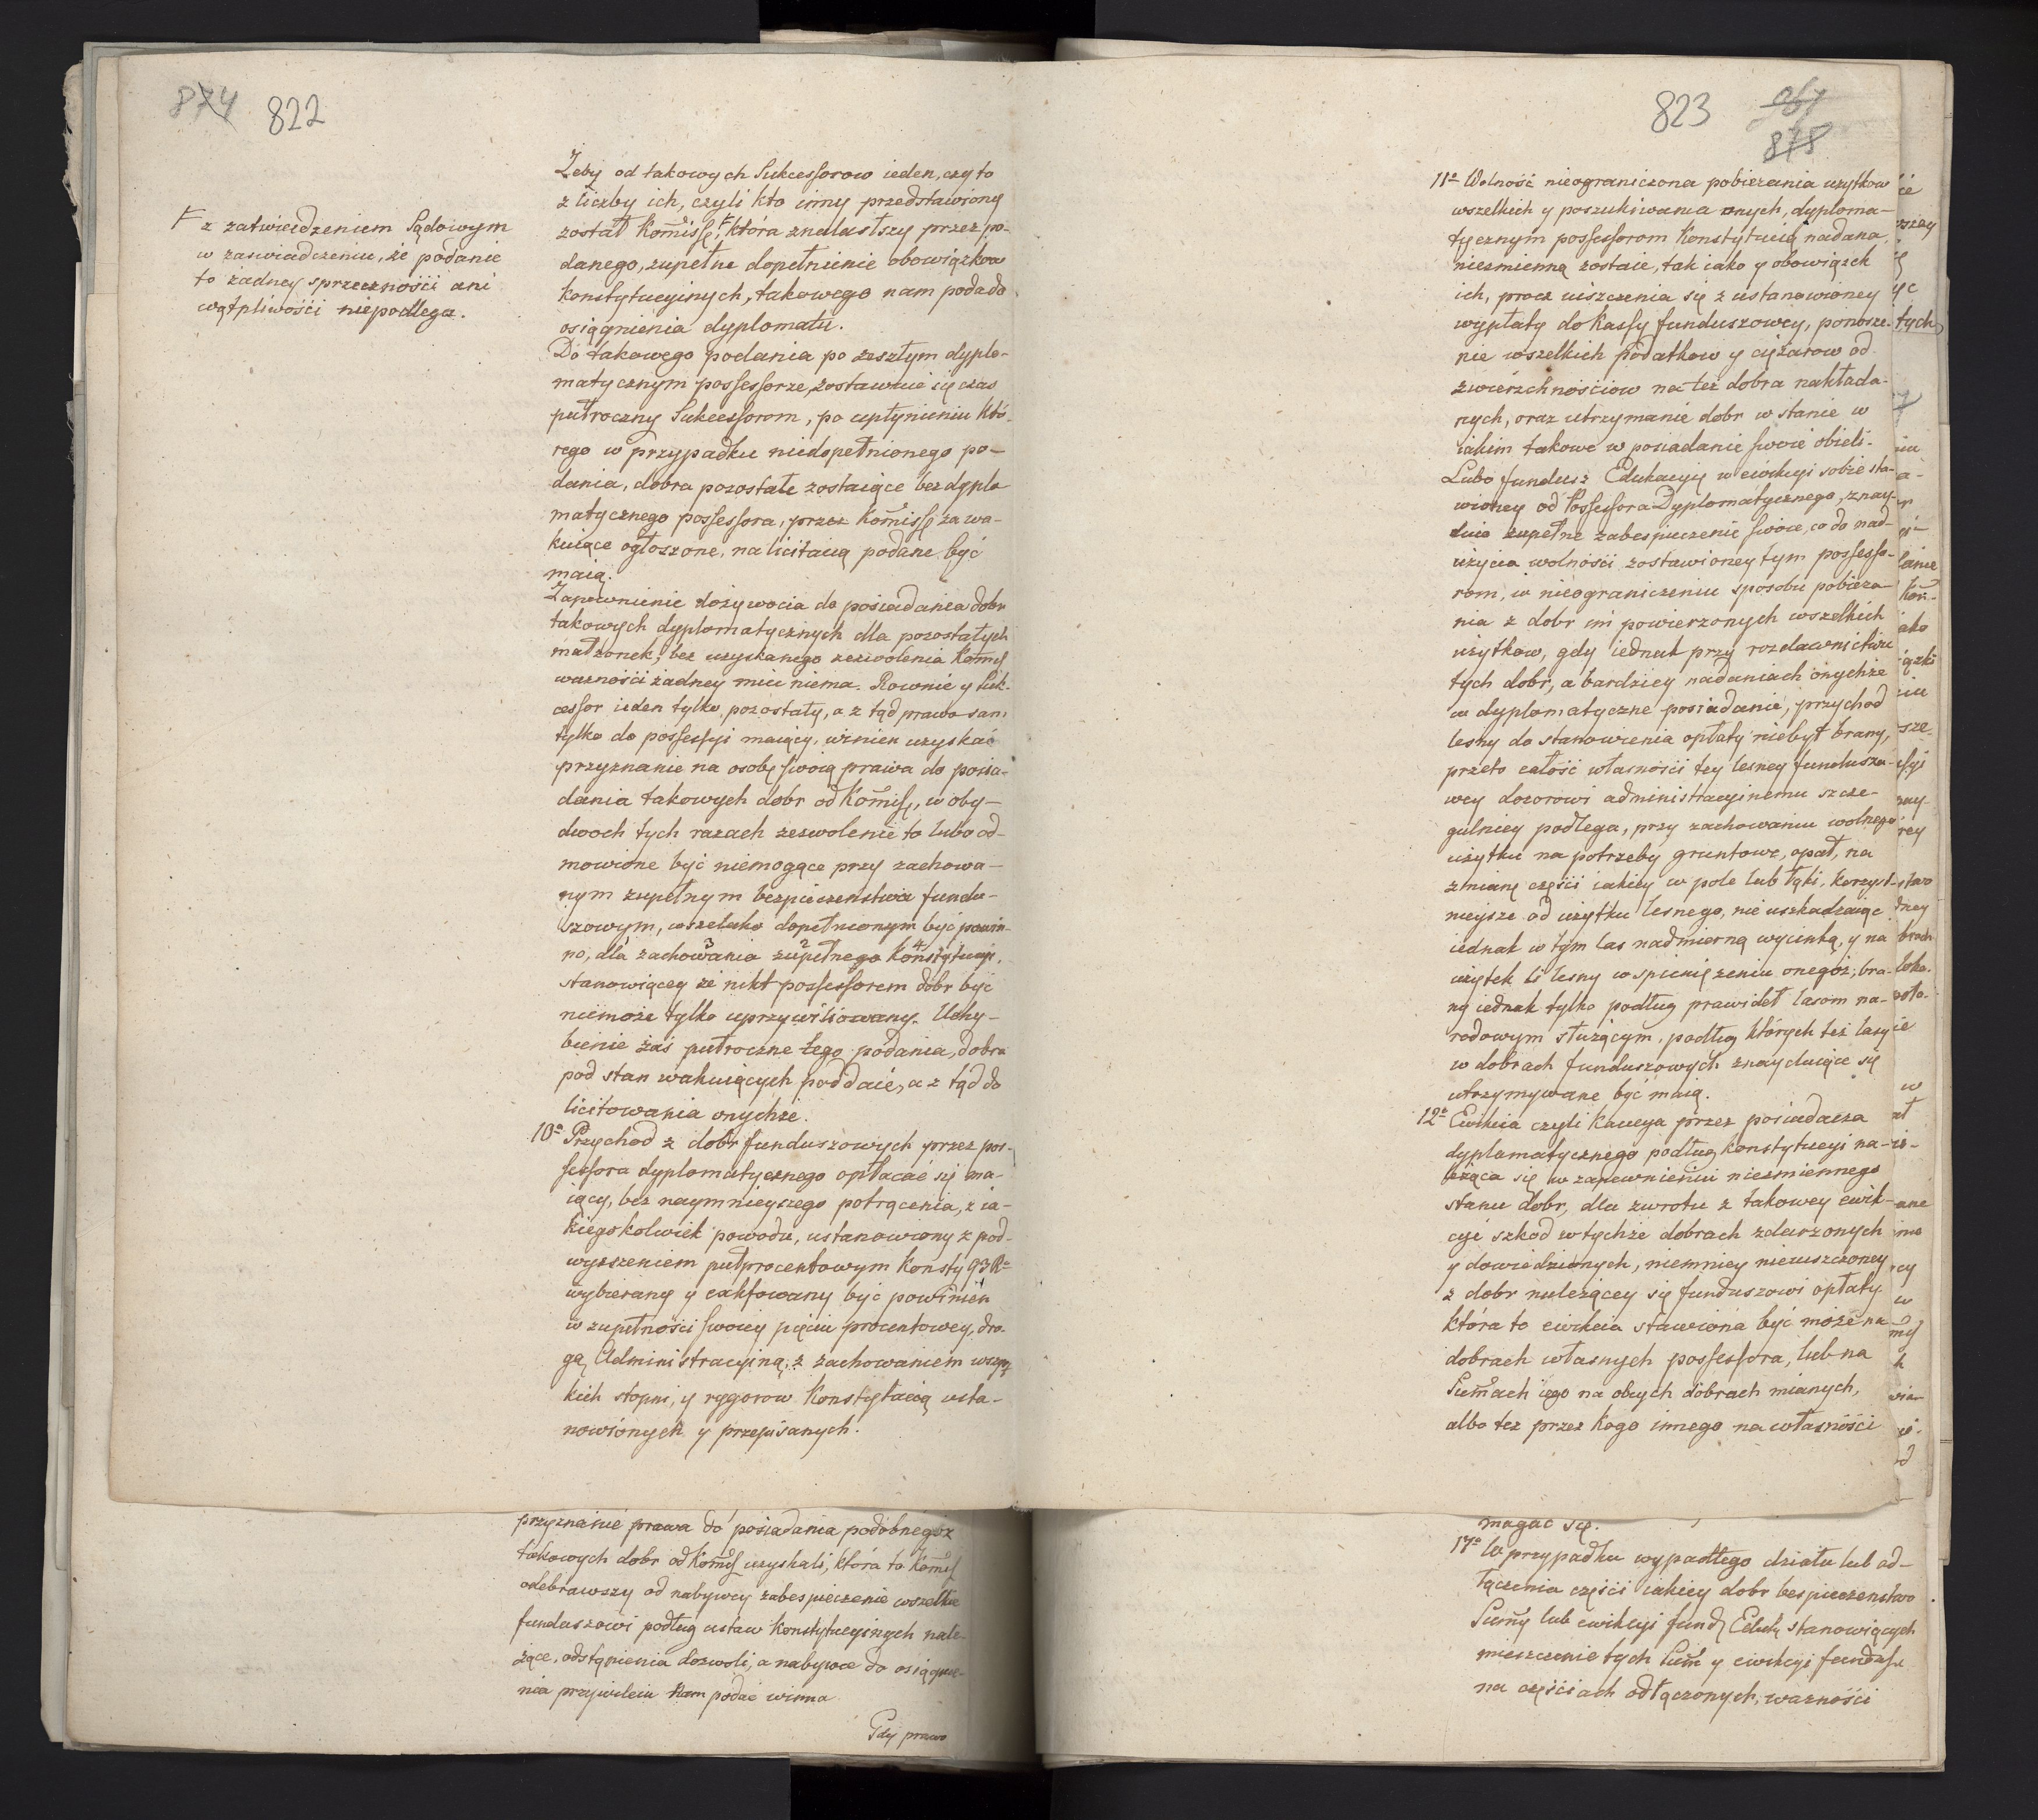 874 822
Żeby od takowych Sukcessorow ieden, czy to
z liczby ich, czyli kto inny przedstawiony
został Kom̃issę,Ⱶ która znalastszy przez po-
danego, zupełne dopełnienie obowiązkow
konstytucyinych, takowego nam poda do
osiągnienia dyplomatu.
Do takowego podania po zeszłym dyplo-
matycznym possessorze, zostawuie się czas
pułroczny Sukcessorom, po upłynieniu któ-
rego w przypadku niedopełnionego po-
dania, dobra pozostałe zostaiące bez dyplo
matycznego possessora, przez Kom̃issę za wa-
kuiące ogłoszone, na licitacią podane być
maią.
Zapewnienie dożywocia do posiadania dobr
takowych dyplomatycznych dla pozostałych
małżonek, bez uzyskanego zezwolenia Kom̃iss
ważności żadney mieć niema. Rownie y Suk-
cessor ieden tylko pozostały, a z tąd prawo sam
tylko do possessyi maiący, winien uzyskać
przyznanie na osobę swoią prawa do posia-
dania takowych dobr od Kom̃iss, w oby-
dwoch tych razach zezwolenie to lubo od-
mowione być niemogące przy zachowa-
nym zupełnym bezpieczenstwie fundu-
szowym, wszelako dopełnionym być powin-
no, dla zachowania zupełnego Konstytucyi,
3 2 4
stanowiącey że nikt possessorem dobr być
niemoże tylko uprzywiliowany. Uchy-
bienie zaś pułroczne tego podania, dobra
pod stan wakuiących poddaie, a z tąd do
licitowania onychże.
10º Przychod z dobr funduszowych przez pos-
sessora dyplomatycznego opłacać się ma-
iący, bez naymnieyszego potrącenia, z ia-
kiegokolwiek powodu, ustanowiony z pod-
wyższeniem pułprocentowym Konsty 93 Rº
wybierany y exaktowany być powinien
w zupełności swoiey pięciu procentowey, dro-
gą Administracyiną, z zachowaniem wszyst
kich stopni, y rygorow Konstytucią usta-
nowionych y przepisanych.
Ⱶ z zatwierdzeniem Sądowym
w zaswiadczeniu, że podanie
to żadney sprzeczności ani
wątpliwości niepodlega.
przyznanie prawa do posiadania podobnegoż
takowych dobr od Kom̃iss uzyskali, która to Kom̃iss
odebrawszy od nabywcy zabespieczenie wszelkie
funduszowi podług ustaw Konstytucyinych nale-
żące, odstąpienia dozwoli, a nabywce do osiągnie-
nia przywileiu nam podać winna
Gdy prawo
823 878
11º Wolność nieograniczona pobierania użytkow
wszelkich y poszukiwania onych, dyploma-
tycznym possessorom Konstytucią nadana,
niezmienną zostaie, tak iako y obowiązek
ich, procz uiszczenia się z ustanowioney
wypłaty do kassy funduszowey, ponosze-
nie wszelkich podatkow y ciężarow od
zwierzchnościow na też dobra nakłada-
nych, oraz utrzymanie dobr w stanie w
iakim takowe w posiadanie swoie obieli.
Lubo fundusz Edukacyiy w ewikcyi sobie sta-
wioney od Possessora Dyplomatycznego, znay-
duie zupełne zabespieczenie swoie, co do nad-
użycia wolności zostawioney tym possesso-
rom, w nieograniczeniu sposobu pobiera-
nia z dobr im powierzonych wszelkich
użytkow, gdy iednak przy rozdawnictwie
tych dobr, a bardziey nadaniach onychże
w dyplomatyczne posiadanie, przychod
lesny do stanowienia opłaty niebył brany,
przeto całość własności tey lesney fundusza-
wey dozorowi administracyinemu szcze-
gulniey podlega, przy zachowaniu wolnego
użytku na potrzeby gruntowe, opał, na
zmianę części iakiey w pole lub łąki, korzyst-
nieysze od użytku lesnego, nie uszkadzaiąc
iednak w tym las nadmierną wycinką, y na
użytek li lesny w spieniężeniu onegoż, bra-
ny iednak tylko podług prawideł lasom na-
rodowym służącym, podług których też lasy
w dobrach funduszowych znayduiące się
utrzymywane być maią.
12º Ewikcia czyli Kaucya przez posiadacza
dyplomatycznego podług konstytucyi na-
leżąca się w zapewnieniu niezmiennego
stanu dobr, dla zwrotu z takowey ewik-
cyi szkod w tychże dobrach zdarzonych
y dowiedzionych, niemniey nieuiszczoney
z dobr należącey się funduszowi opłaty
która to ewikcia stawiona być może na
dobrach własnych possessora, lub na
Sum̃ach iego na obcych dobrach mianych,
albo też przez kogo innego na własności
magać się.
17º W przypadku wypadłego działu lub od-
łączenia części iakiey dobr bespieczenstwo
Sum̃y lub ewikcyi fund Eduk stanowiących
mieszczenie tych Sum̃ y ewikcyi fundusz
na częściach odłączonych, ważności